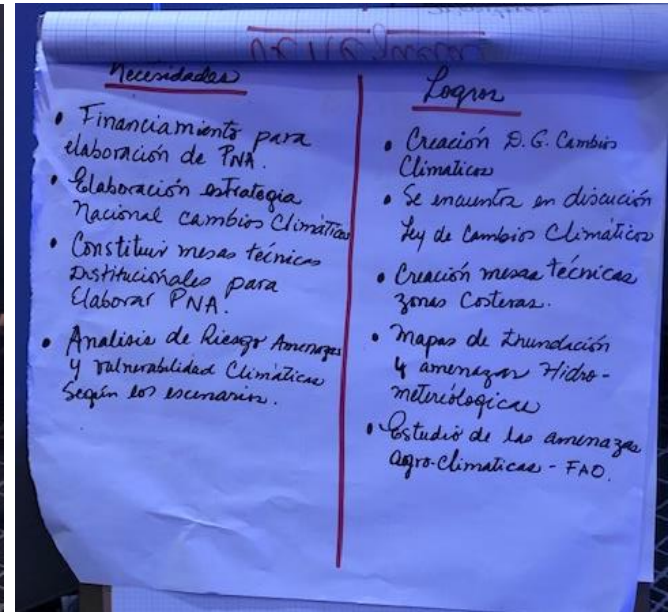 Necesidades
• Financiamiento para
elaboración de PNA.
• Elaboración estrategia
Nacional cambios Climáticos
• Constituir mesas técnicas
Institucionales para
Elaborar PNA.
• Analisis de Riesgo Amenazas
y vulnerabilidad Climáticas
Según los escenarios.
Logros
• Creación D.G. Cambios
Climaticos
• Se encuentra en discución
Ley de Cambios Climáticos
• Creación mesas técnicas
zonas Costeras.
• Mapas de Inundación
y amenazas Hidro-
meteriólogicas
• Estudio de las amenazas
agro-climaticas - FAO.